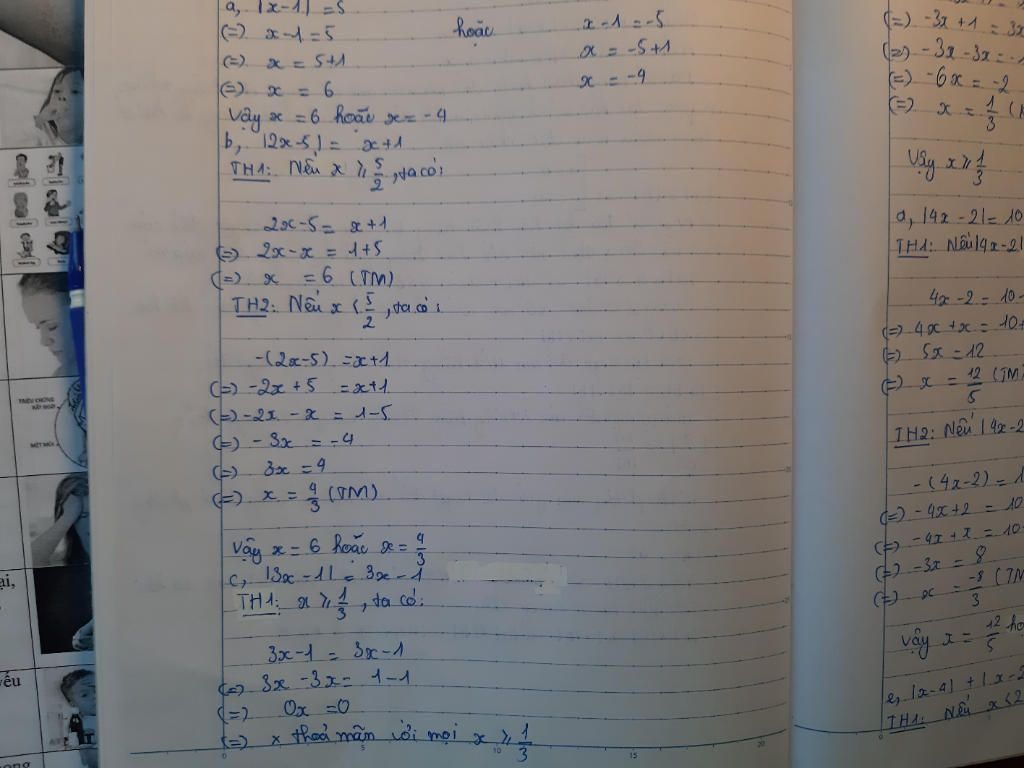 a, |x-1| = 5
(=) x-1 = 5 hoặc x-1 = -5
(=) x = 5+1 x = -5+1
(=) x = 6 x = -4
Vậy x = 6 hoặc x = -4
b, |2x-5| = x+1
TH1: Nếu x ⩾ 5/2, ta có:
2x-5 = x+1
(=) 2x-x = 1+5
(=) x = 6 (TM)
TH2: Nếu x < 5/2, ta có:
-(2x-5) = x+1
(=) -2x+5 = x+1
(=) -2x - x = 1-5
(=) -3x = -4
(=) 3x = 4
(=) x = 4/3 (TM)
Vậy x = 6 hoặc x = 4/3
c, |3x-1| = 3x-1
TH1: x ⩾ 1/3, ta có:
3x-1 = 3x-1
(=) 3x-3x = 1-1
(=) 0x = 0
(=) x thoả mãn với mọi x ⩾ 1/3
(=) -3x+1 = 3x
(=) -3x-3x = -1
(=) -6x = -2
(=) x = 1/3
Vậy x ⩾ 1/3
d, |4x-2| = 10
TH1: Nếu |4x-2|
4x-2 = 10-
(=) 4x+x = 10+
(=) 5x = 12
(=) x = 12/5 (TM)
TH2: Nếu |4x-2
-(4x-2) = 1
(=) -4x+2 = 10
(=) -4x+x = 10-
(=) -3x = 8
(=) x = -8/3 (TM
Vậy x = 12/5 ho
e, |x-4| + |x-2
TH1: Nếu x<2
TRIỆU CHỨNG
BẤT NGỜ
MỆT MỎI
ại,
yếu